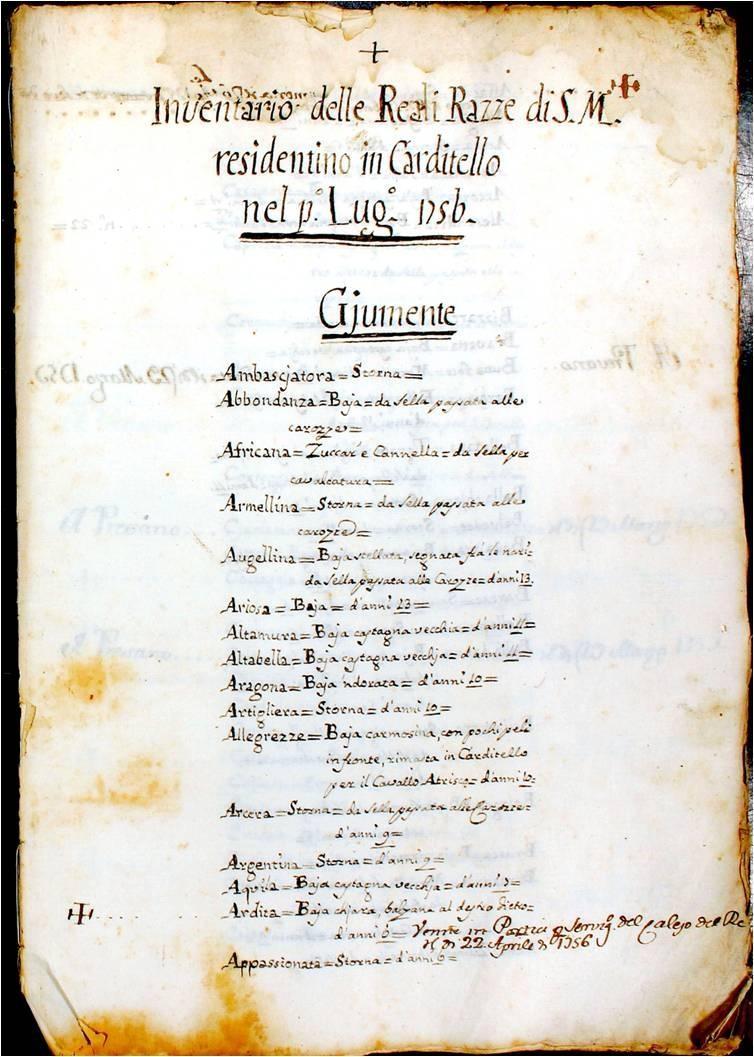 +
Inventario delle Reali Razze di S. M.
residentino in Carditello
nel p.º Lugº 1756
Gjumente
Ambascjatora = Storna =
Abbondanza = Baja = da sella passata alle
carozze =
Africana = Zuccar' e Cannella = da sella per
cavalcatura =
Armellina = Storna = da sella passata alle
carozze =
Augellina = Baja stellata, segnata frà le nari =
da sella passata alle Carozze = d'anni 13.
Ariosa = Baja = d'anni 13 =
Altamura = Baja castagna vecchia = d'anni 11 =
Altabella = Baja castagna vecchja = d'anni 11 =
Aragona = Baja 'ndorata = d'anni 10 =
Artigliera = Storna = d'anni 10 =
Allegrezze = Baja carmosina, con pochi peli
in fronte, rimasta in Carditello
per il Cavallo Atrisco = d'anni 10 =
Arcera = Storna = da sella passata alle Carozze =
d'anni 9 =
Argentina = Storna = d'anni 9 =
Aquila = Baja castagna vecchja = d'anni 7 =
Ardita = Baja chiara, balzana al destro dietro =
d'anni 6 = Venne in Portici servizº del Calejo del Re
22 Aprile 1756
Appassionata = Storna = d'anni 6 =